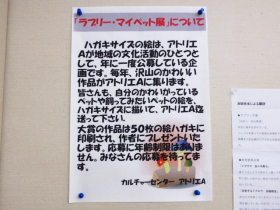 「ラブリー・マイペット展」について
ハガキサイズの絵は、アトリエ
Aが地域の文化活動のひとつと
して、年に一度公募している企
画です。毎年、沢山のかわいい
作品がアトリエAに集ります。
皆さんも、自分のかわいがっている
ペットや飼ってみたいペットの絵を、
ハガキサイズに描いて、アトリエA迄
送って下さい。
大賞の作品は50枚の絵ハガキに
印刷され、作者にプレゼントいた
します。応募に年齢制限はありま
せん。みなさんの応募を待ってま
す。
カルチャーセンター アトリエA